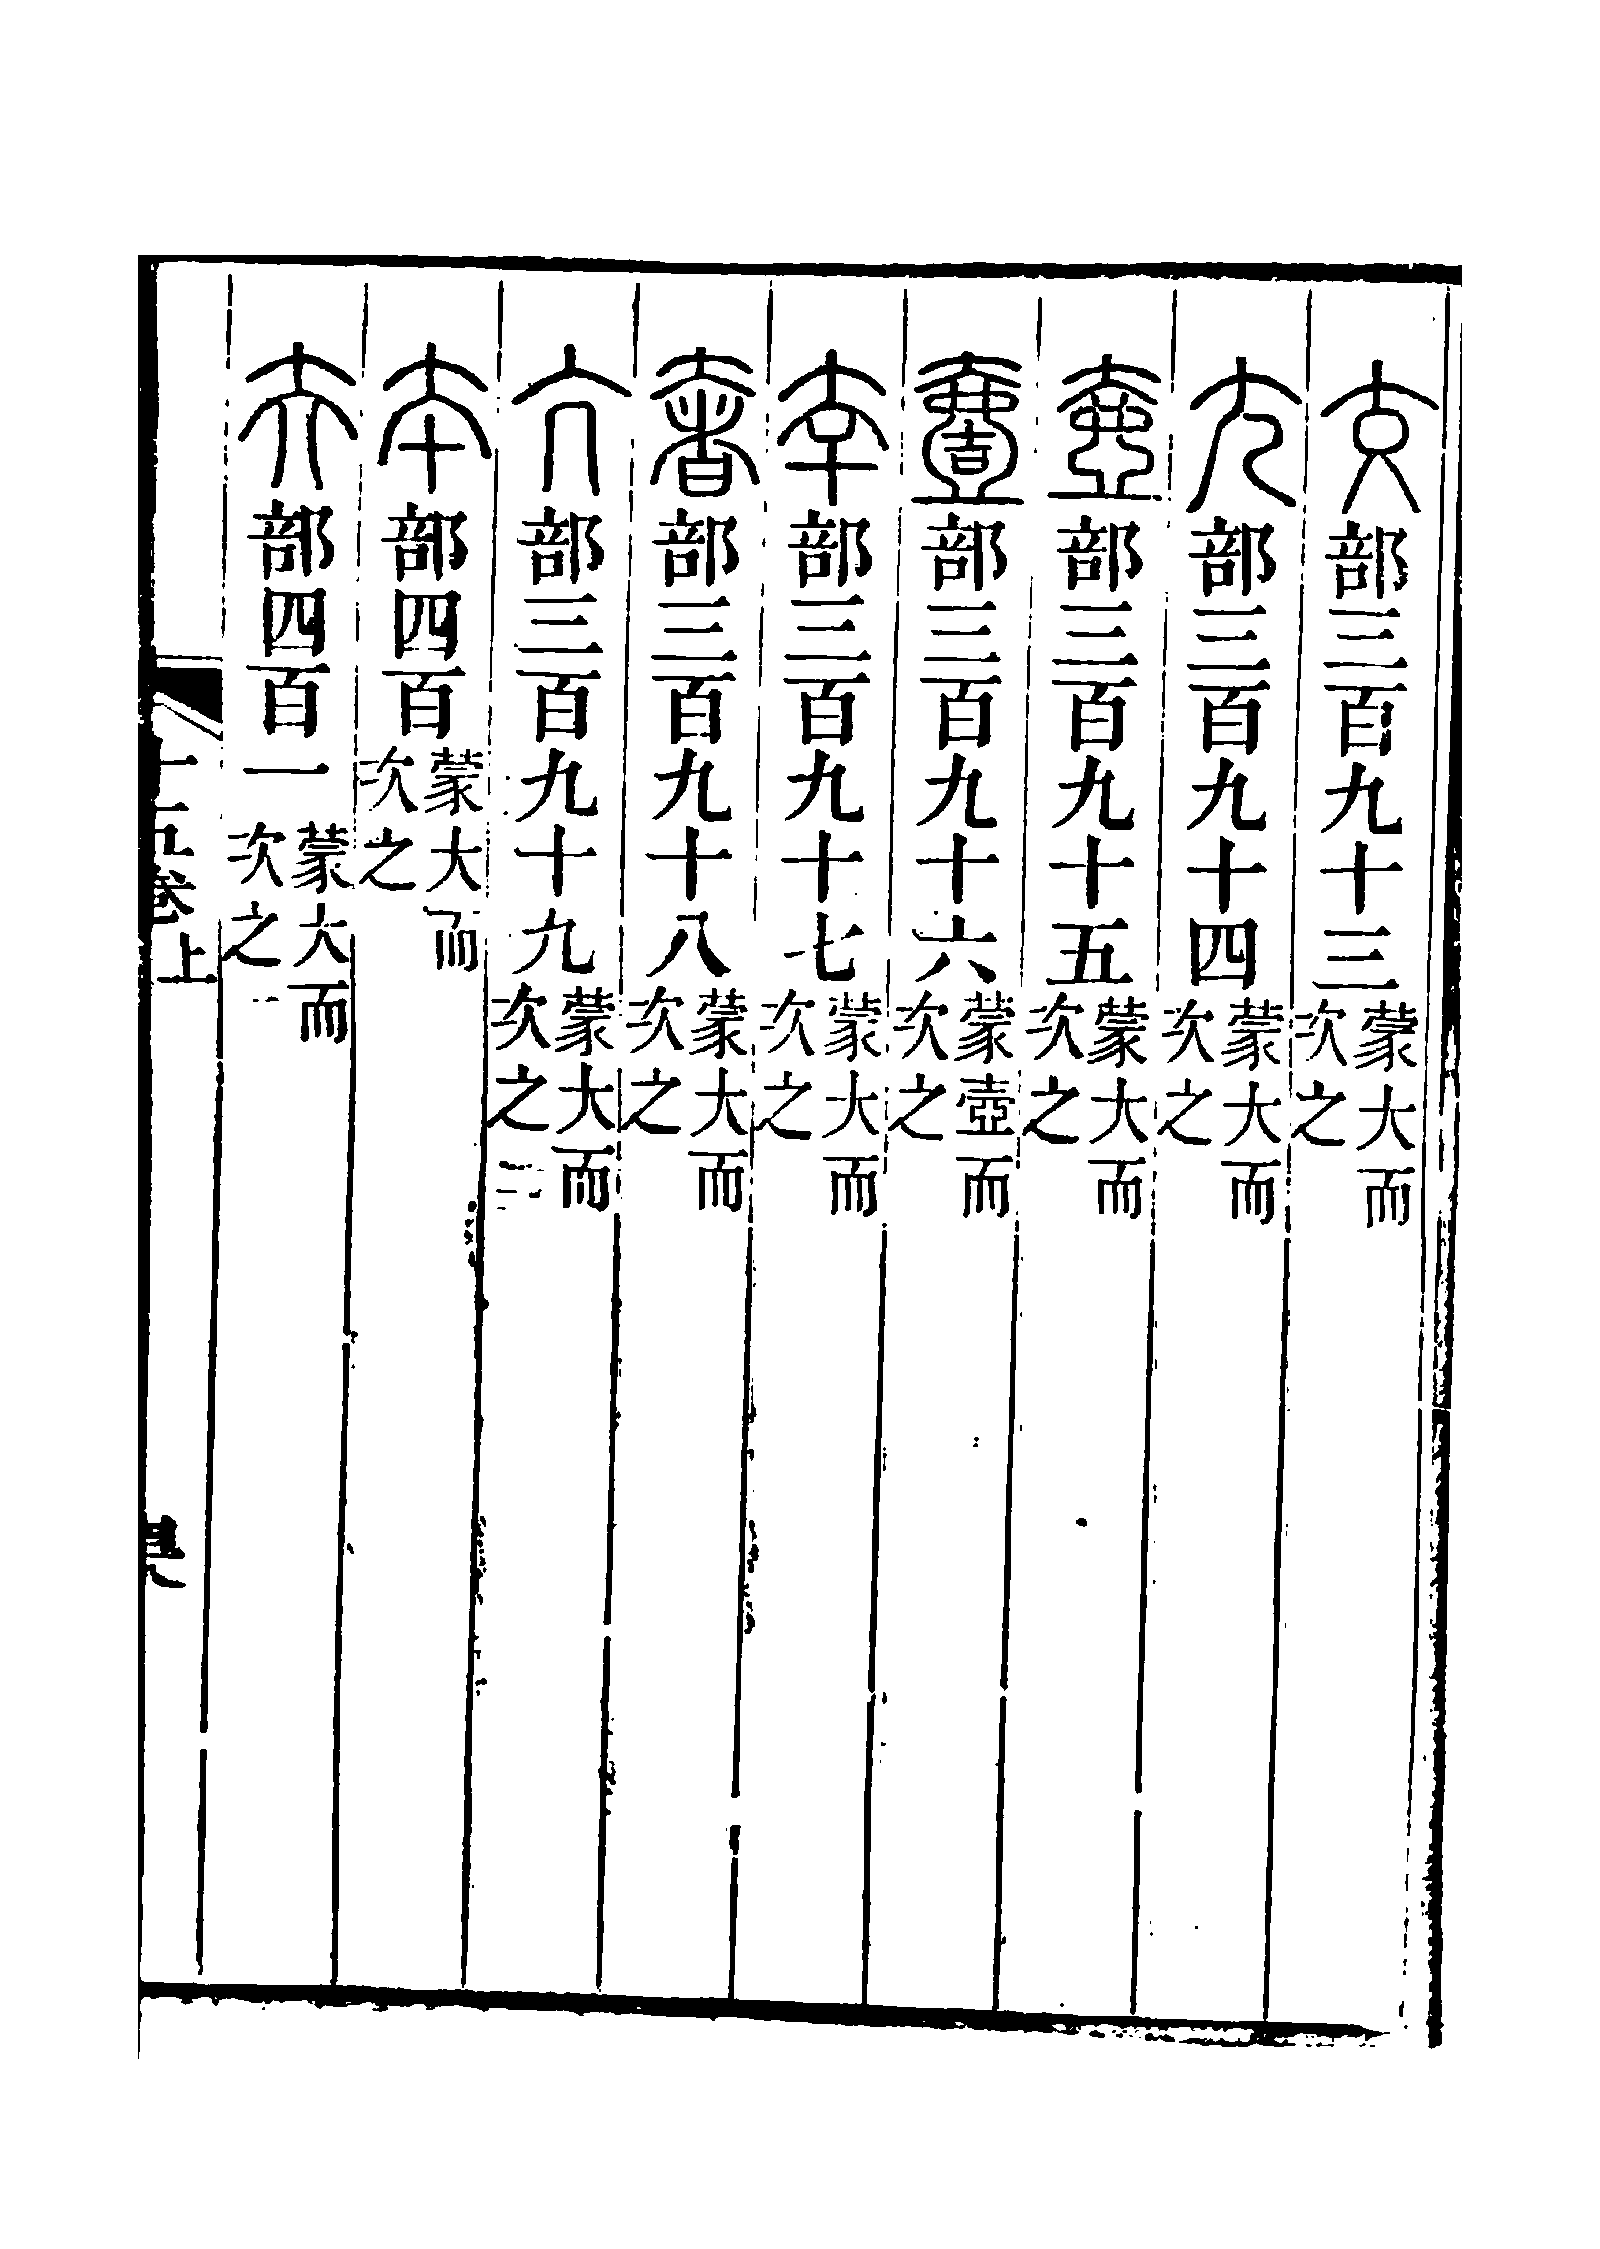 交部三百九十三蒙大而次之
尣部三百九十四蒙大而次之
壺部三百九十五蒙大而次之
壹部三百九十六蒙壺而次之
㚔部三百九十七蒙大而次之
奢部三百九十八蒙大而次之
亢部三百九十九蒙大而次之
夲部四百蒙大而次之
夰部四百一蒙大而次之
十五卷上